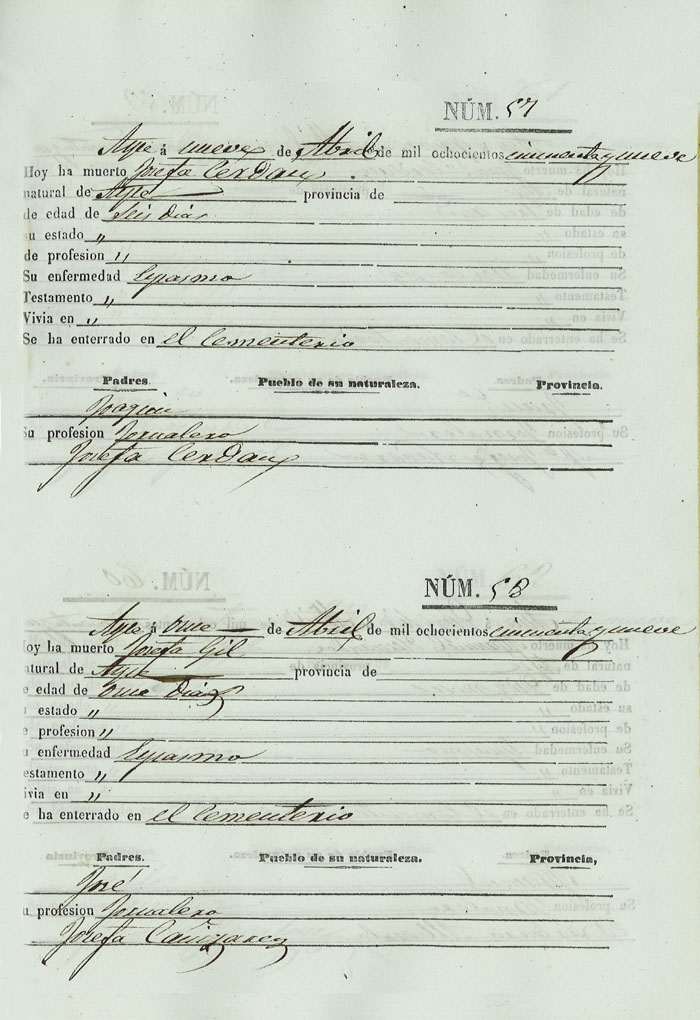 NÚM. 57
Aspe á nueve de Abril de mil ochocientos cincuenta y nueve
Hoy ha muerto Josefa Cerdan
natural de Aspe provincia de
de edad de Seis Dias
su estado „
de profesion „
Su enfermedad Espasmo
Testamento „
Vivia en „
Se ha enterrado en el Cementerio
Padres. Pueblo de su naturaleza. Provincia.
Joaquin
Su profesion Jornalero
Josefa Cerdan
NÚM. 58
Aspe á once de Abril de mil ochocientos cincuenta y nueve
oy ha muerto Josefa Gil
atural de Aspe provincia de
e edad de once Dias
u estado „
e profesion „
u enfermedad Espasmo
estamento „
ivia en „
e ha enterrado en el Cementerio
Padres. Pueblo de su naturaleza. Provincia,
José
u profesion Jornalero
Josefa Cañizares